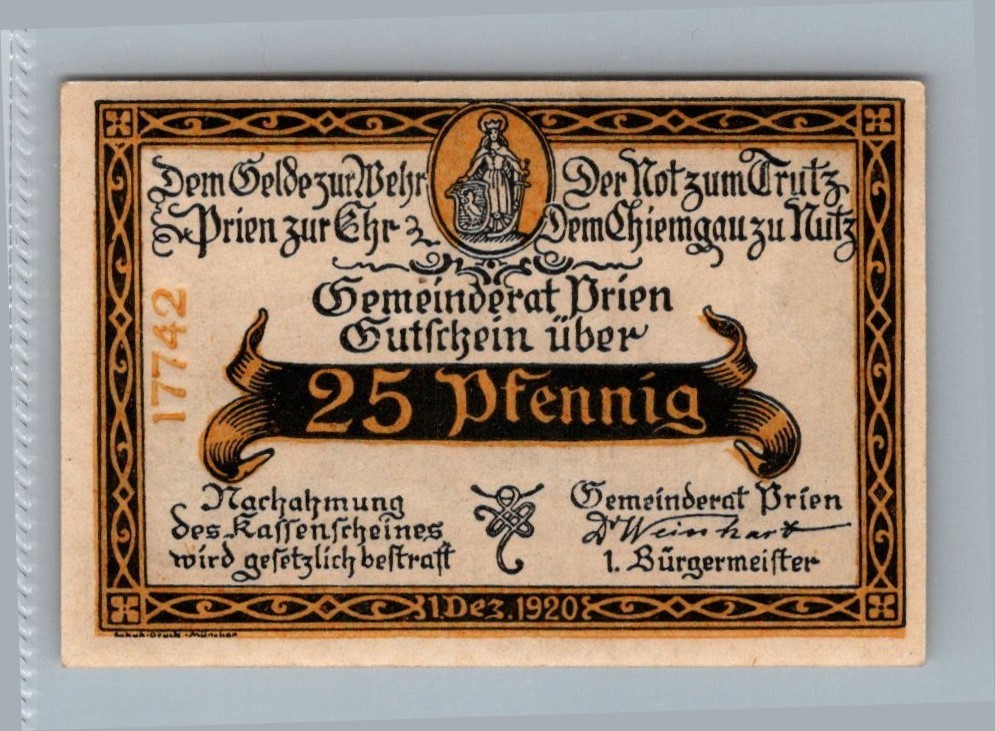 Dem Gelde zur Wehr
Prien zur Ehr
Der Not zum Trutz
Dem Chiemgau zu Nutz
Gemeinderat Prien
Gutschein über
25 Pfennig
17742
Nachahmung
des Kassenscheines
wird gesetzlich bestraft
Gemeinderat Prien
Dr Weinhart
1. Bürgermeister
1. Dez. 1920
Schuh-Druck-München